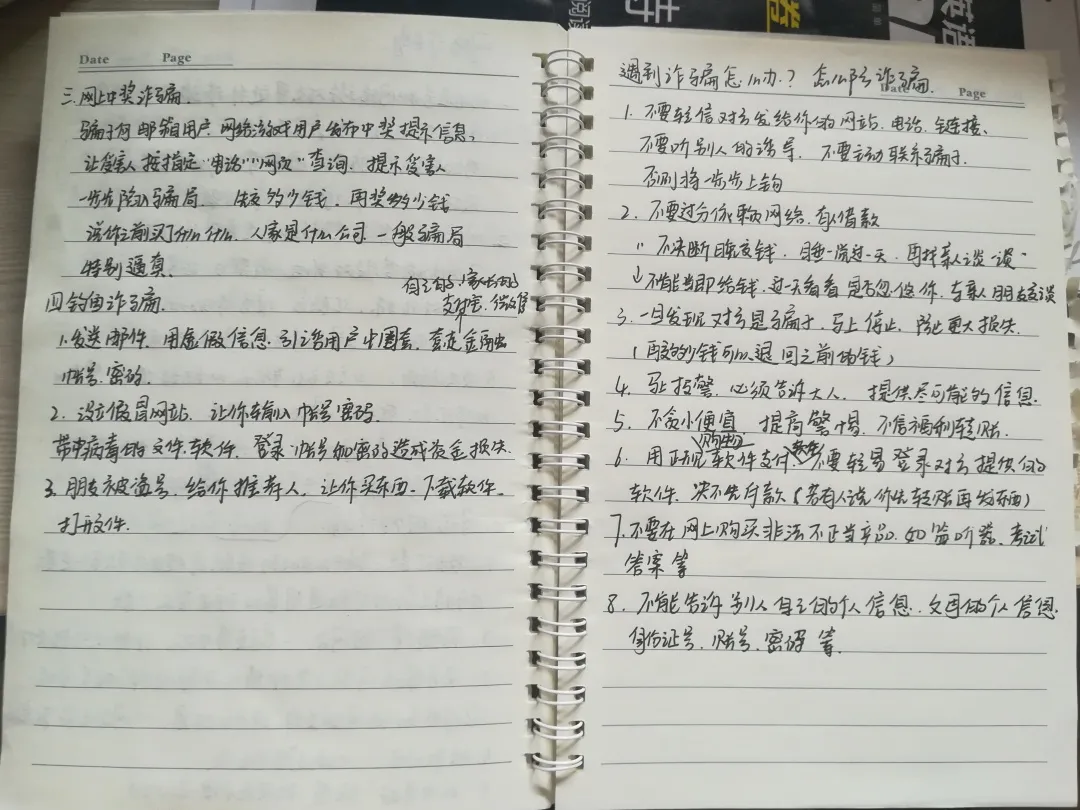 Date Page
三.网上中奖诈骗.
骗子向邮箱用户、网络游戏用户发布中奖提示信息、
让受害人按指定“电话”“网页”查询、提示受害人
一步步陷入骗局、 多少钱,再奖多少钱
说你之前买了什么什么、人家是什么公司、一般骗局
特别逼真、
自己的、家长的
支付宝、微信
四钓鱼诈骗、
1.发送邮件、用虚假信息引诱用户中圈套、套走金融
帐号、密码.
2. 设立假冒网站、让你输入帐号密码
带病毒的文件、软件、登录帐号加密的造成资金损失.
3.朋友被盗号、给你推荐人、让你买东西、下载软件、
打开文件.
Date Page
遇到诈骗怎么办.?怎么防诈骗.
1. 不要轻信对方发给你的网站、电话、链接、
不要听别人的诱导、不要主动联系骗子.
否则将一步步上钩
2. 不要过分依赖网络、有人借款
不果断 钱、睡一觉过一天、再找亲人谈一谈
↓不能当即给钱、过一天看看是否忽悠你、与亲人朋友交谈
3. 一旦发现对方是骗子、马上停止、防止更大损失.
(再交多少钱可以退回之前的钱)
4. 马上报警、必须告诉大人、提供尽可能的信息.
5. 不贪小便宜、提高警惕、不信福利转账.
购物
6. 用正规软件支付、不要轻易登录对方提供的
软件、决不先付款(若有人说你先转账再发东西)
7.不要在网上购买非法不正当产品、如监听器、考试
答案等
8. 不能告诉别人自己的个人信息、父母的个人信息.
身份证号、账号、密码等.
英语